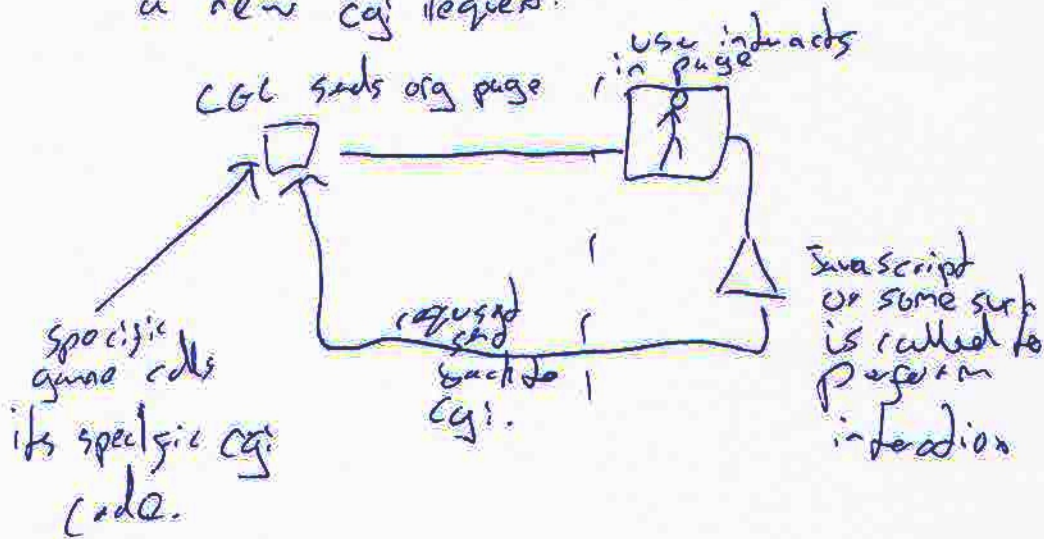 a new cgi request.
user interacts
in page
CGI sends org page
JavaScript
or some such
is called to
perform
interaction
request
send
back to
cgi.
specific
game calls
its specific cgi
code.